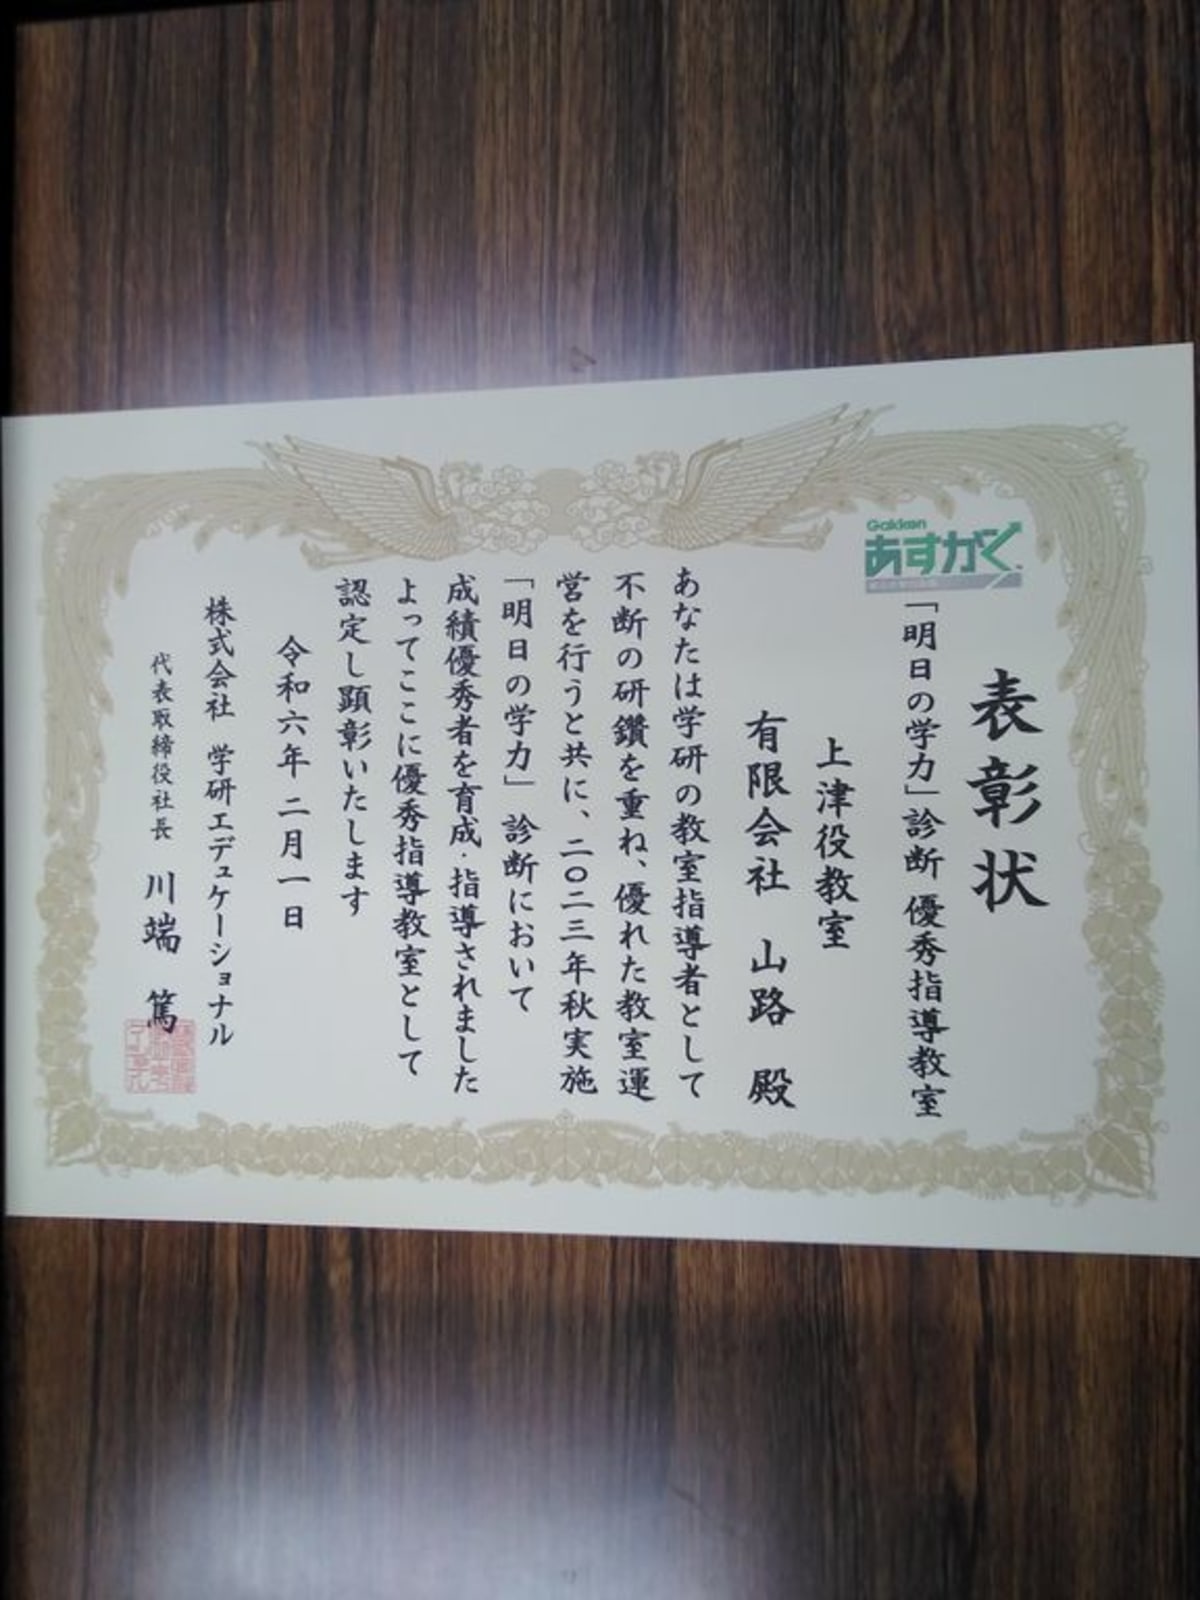 Gakken
あすがく
表彰状
「明日の学力」診断 優秀指導教室
上津役教室
有限会社 山路 殿
あなたは学研の教室指導者として
不断の研鑽を重ね、優れた教室運
営を行うと共に、二〇二三年秋実施
「明日の学力」診断において
成績優秀者を育成・指導されました
よってここに優秀指導教室として
認定し顕彰いたします
令和六年 二月一日
株式会社 学研エデュケーショナル
代表取締役社長 川端 篤